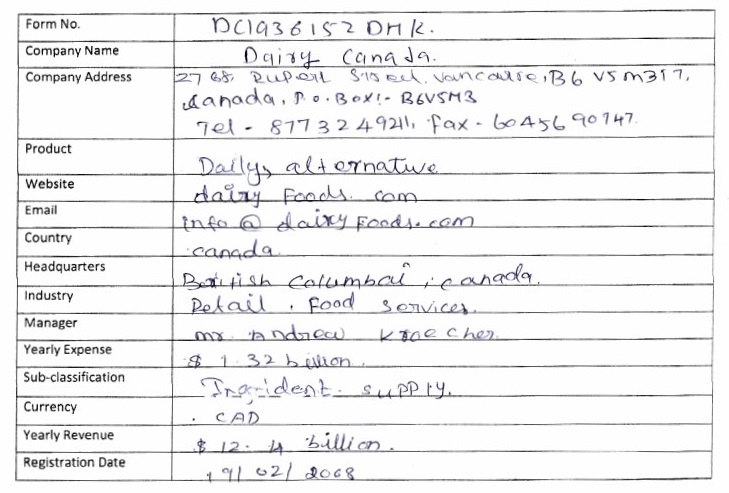 Form No. DC1936152DHK.
Company Name Dairy Canada.
Company Address 2768, Rupert Street, Vancouver, B6 V5M3T7,
Canada, P.O.Box:- B6V5M3
Tel - 8773249241, fax - 6045690747.
Product Dailys alternative
Website dairy Foods. com
Email info @ dairy Foods. com
Country canada
Headquarters British Columbai, canada.
Industry Retail, Food services.
Manager mr. Andrew Kroecher.
Yearly Expense $ 1.32 billion.
Sub-classification supply.
Currency CAD
Yearly Revenue $ 12.4 billion.
Registration Date 19/02/2008